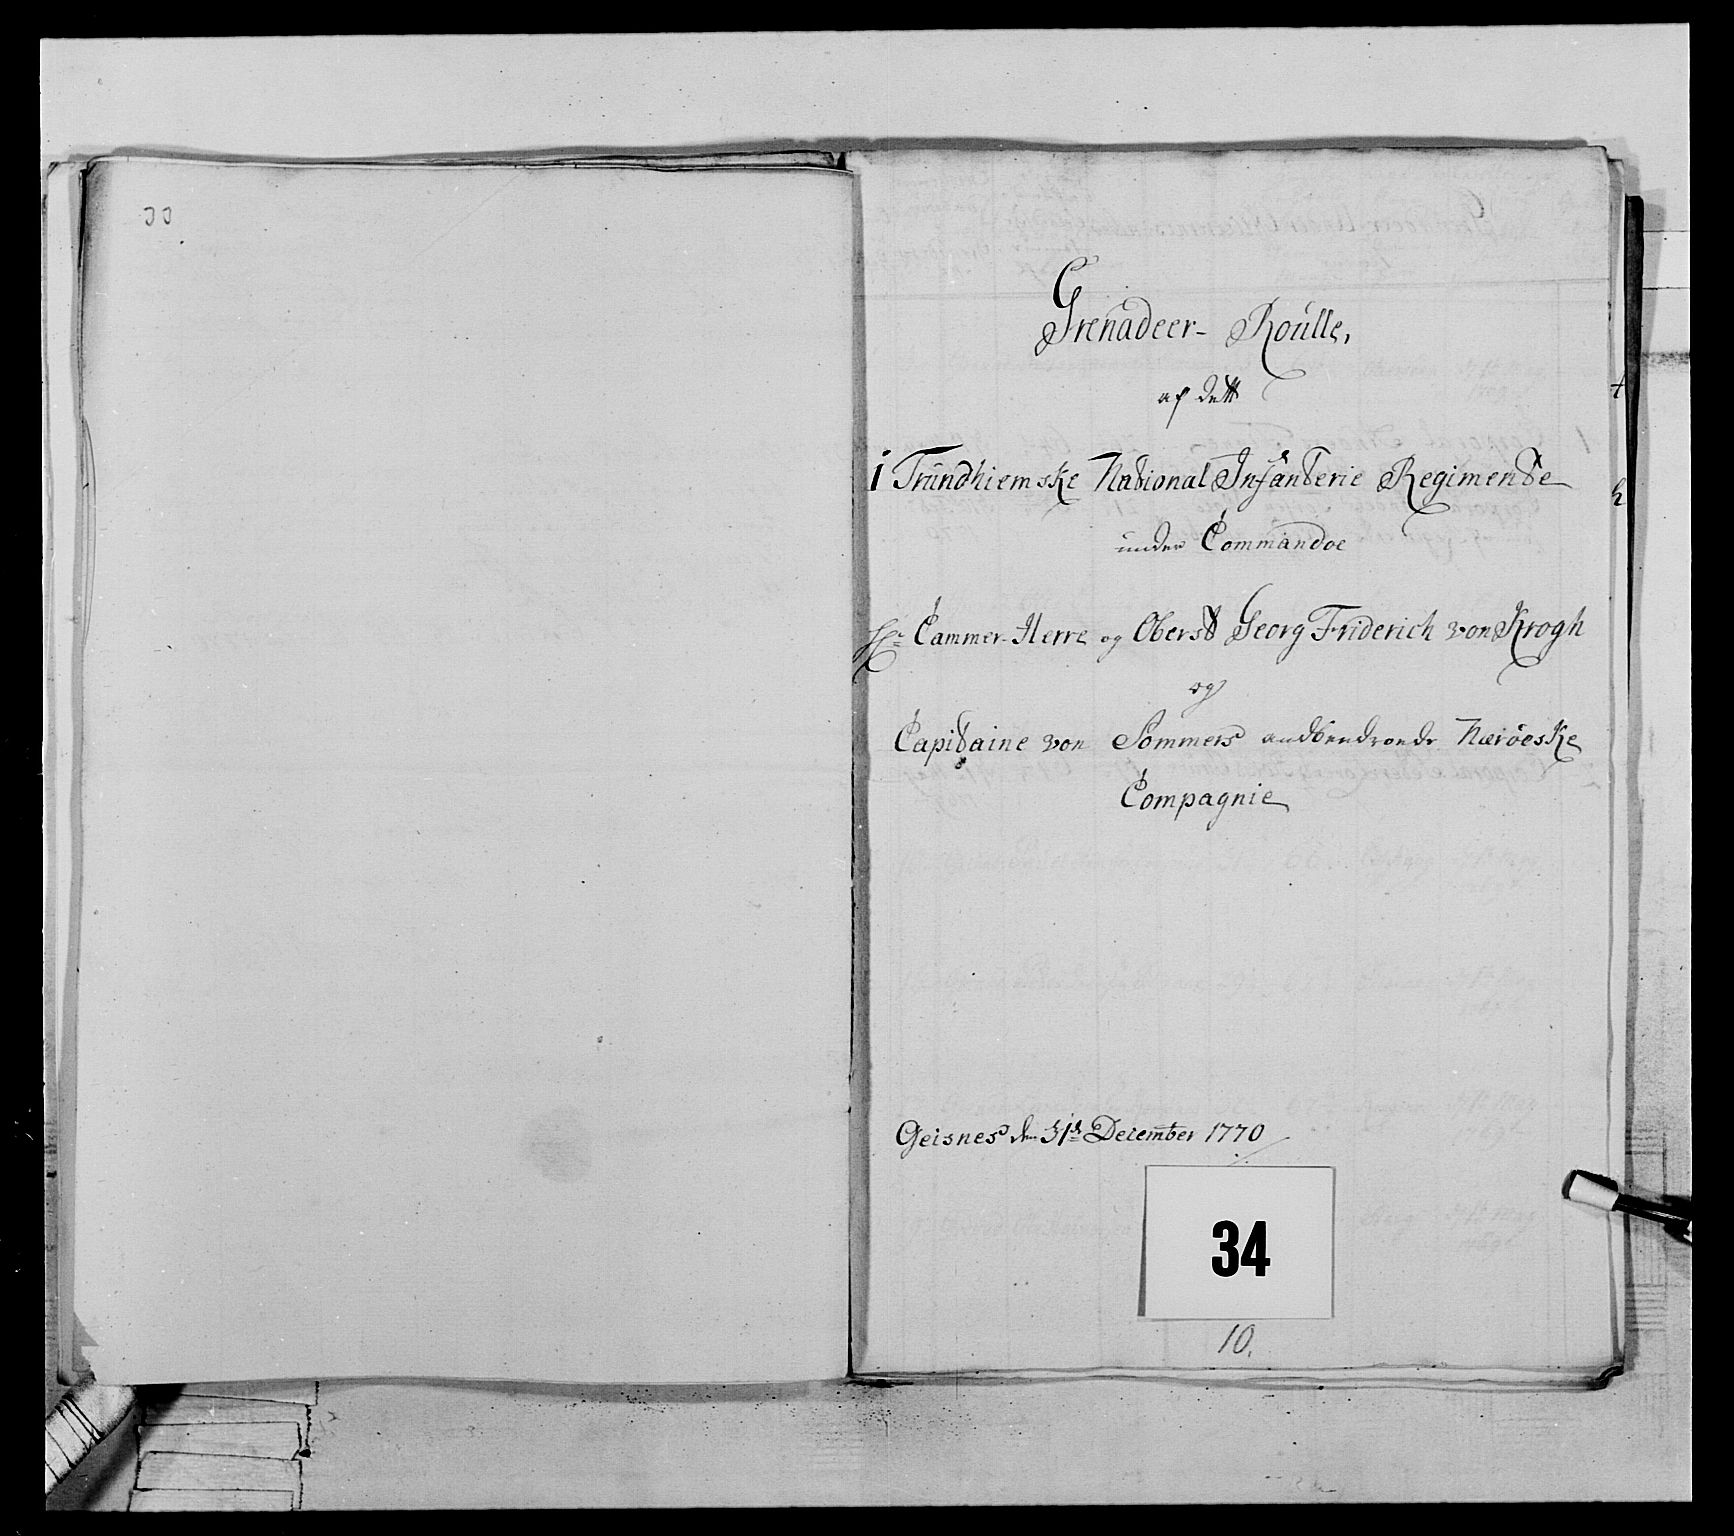 Grenadeer- Roulle,
af dett
1 Trundhiemske National Infanterie Regimente
under Commandoe
Hr Cammer-Herre og Oberst Georg Friderich von Krogh
og
Capitaine von Sommers Nærøeske
Compagnie
Geisnes den 31te December 1770
34
10.